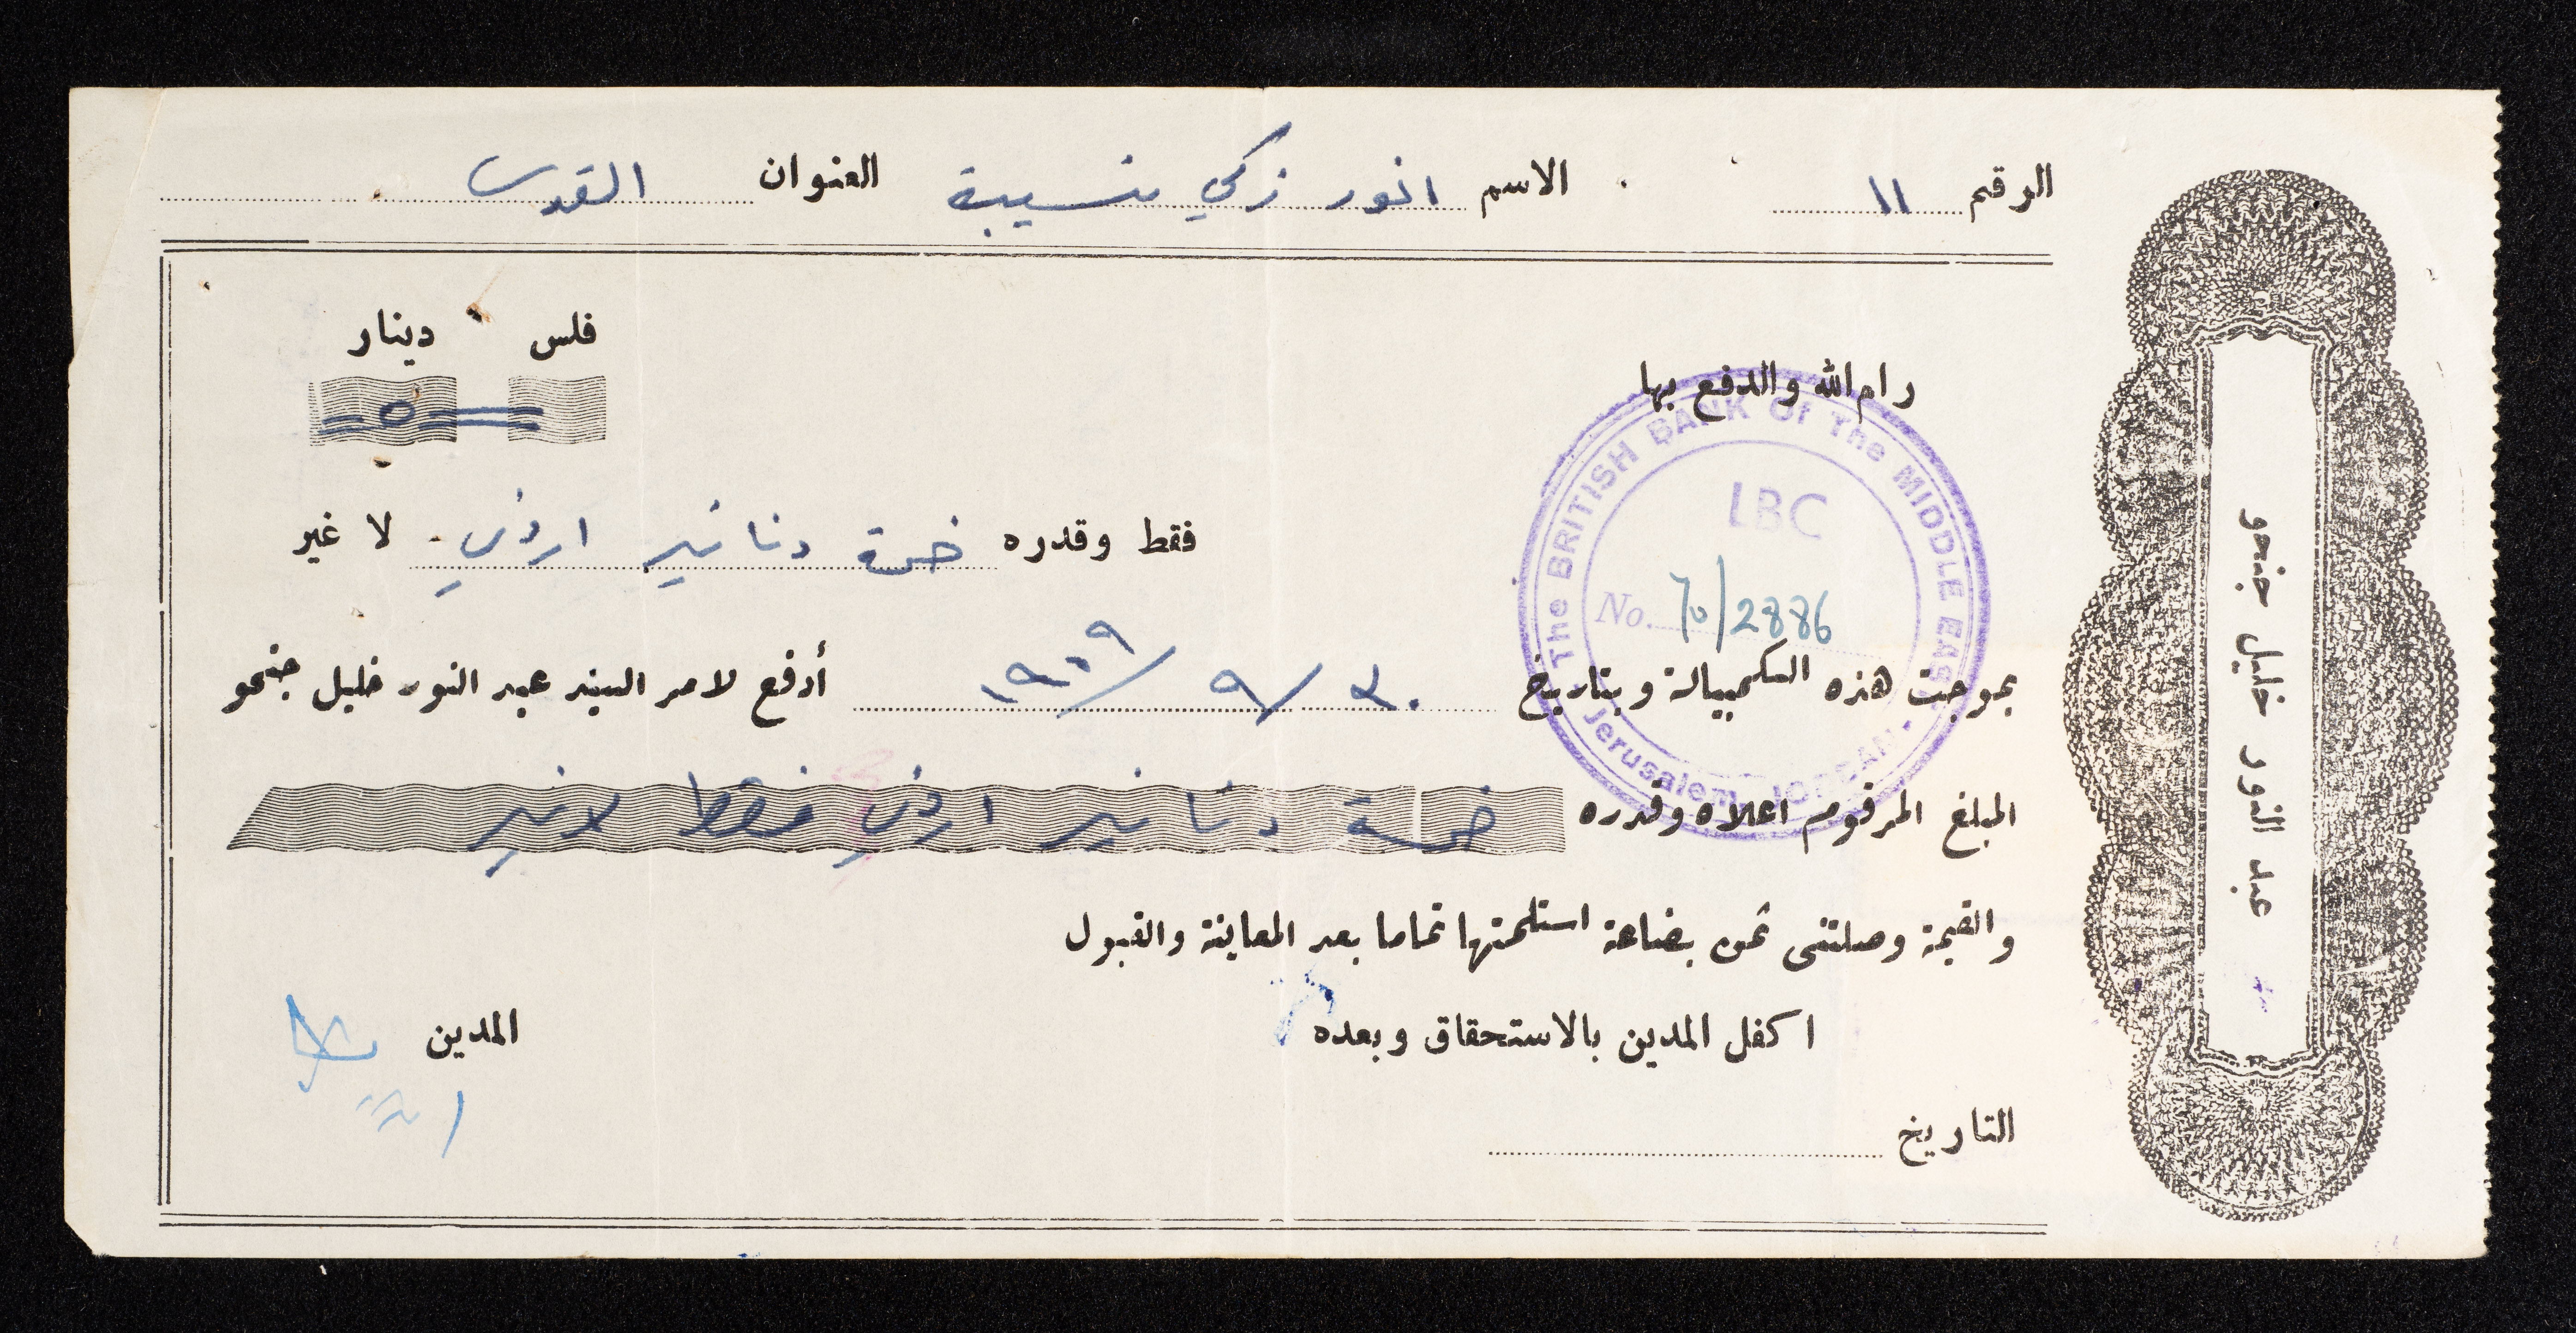 الرقم ١١ الاسم انور زكي نسيبة العنوان القدس
فلس دينار
=٥=
رام الله والدفع بها
The BRITISH BANK Of The MIDDLE EAST
LBC
No. 70/2886
Jerusalem JORDAN
فقط وقدره خمسة دنانير اردني لا غير
بموجب هذه الكمبيالة وبتاريخ ٣٠/٩/١٩٥٩ أدفع لامر السيد عبد النور خليل جنحو
المبلغ المرقوم اعلاه وقدره خمسة دنانير اردني فقط لا غير
والقيمة وصلتني ثمن بضاعة استلمتها تماما بعد المعاينة والقبول
اكفل المدين بالاستحقاق وبعده المدين
التاريخ
عبد النور خليل جنحو